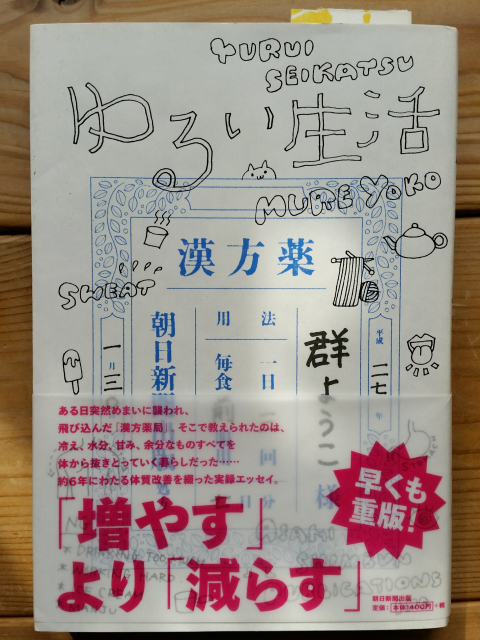 YURUI
SEIKATSU
ゆるい生活
MURE YOKO
漢方薬
SWEAT
平成二七年
一月三
群ようこ様
用法
一日二回
毎食前
朝日新
ある日突然めまいに襲われ、
飛び込んだ「漢方薬局」。そこで教えられたのは、
冷え、水分、甘み、余分なものすべてを
体から抜きとっていく暮らしだった……
約6年にわたる体質改善を綴った実録エッセイ。
早くも
重版!
「増やす」
より「減らす」
朝日新聞出版
定価:本体1400円+税